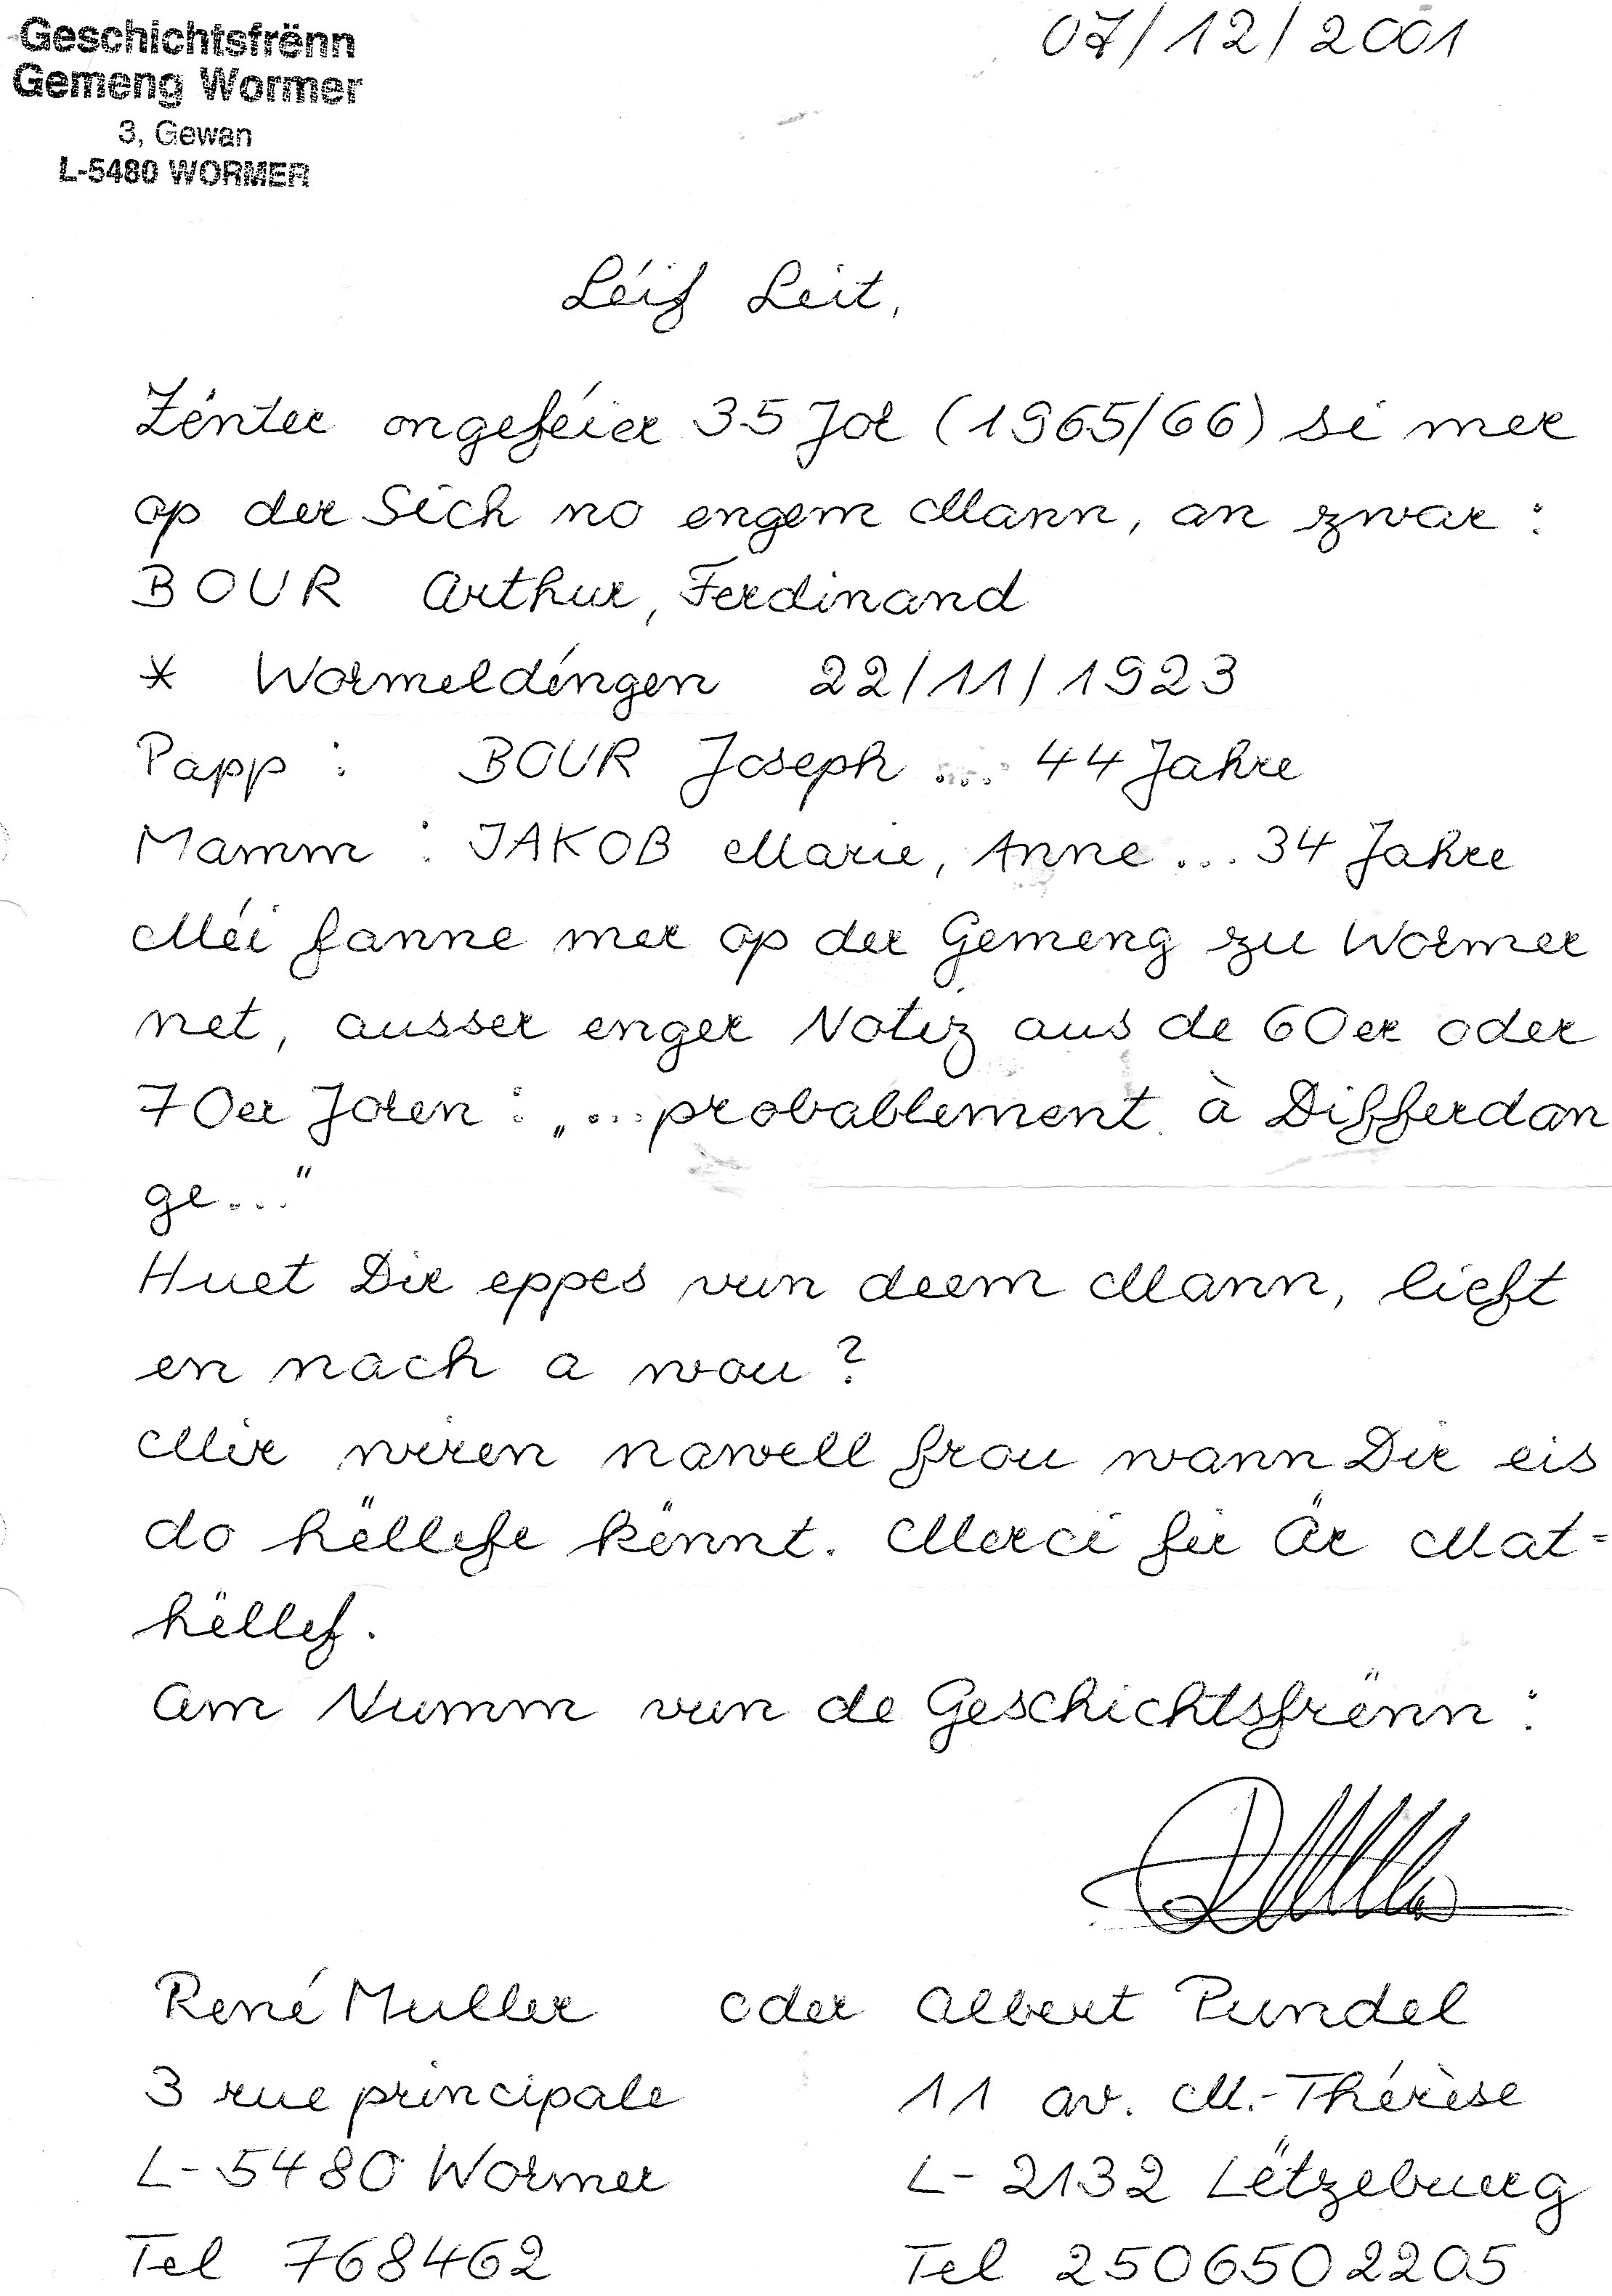 Geschichtsfrënn
Gemeng Wormer
3, Gewan
L-5480 WORMER
07/12/2001
Léif Leit,
Zënter ongeféier 35 Jor (1965/66) si mer
op der Sich no engem Mann, an zwar :
BOUR Arthur, Ferdinand
* Wormeldéngen 22/11/1923
Papp : BOUR Joseph ... 44 Jahre
Mamm : JAKOB Marie, Anne ... 34 Jahre
Méi fanne mer op der Gemeng zu Wormer
net, ausser enger Notiz aus de 60er oder
70er Joren : „...probablement à Differdan
ge..."
Huet Dir eppes vun deem Mann, lieft
en nach a wou ?
Mir wiren nawell frou wann Dir eis
do hëllefe kënnt. Merci fir Är Mat=
hëllef.
Am Numm vun de Geschichtsfrënn :
René Muller oder Albert Pundel
3 rue principale 11 av. M.-Thérèse
L-5480 Wormer L-2132 Lëtzebuerg
Tel 768462 Tel 2506502205